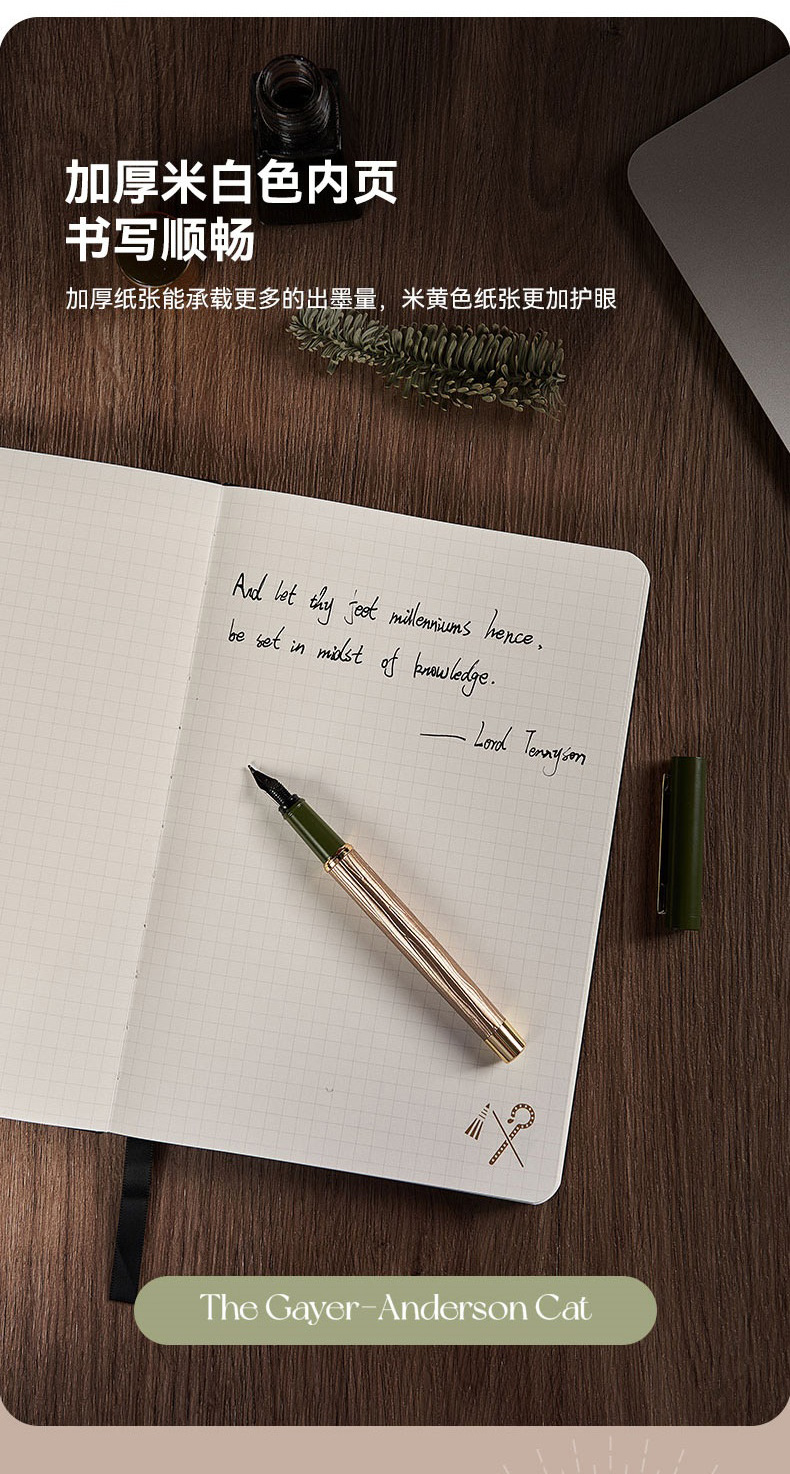 加厚米白色内页
书写顺畅
加厚纸张能承载更多的出墨量，米黄色纸张更加护眼
And let thy feet millenniums hence,
be set in midst of knowledge.
— Lord Tennyson
The Gayer-Anderson Cat